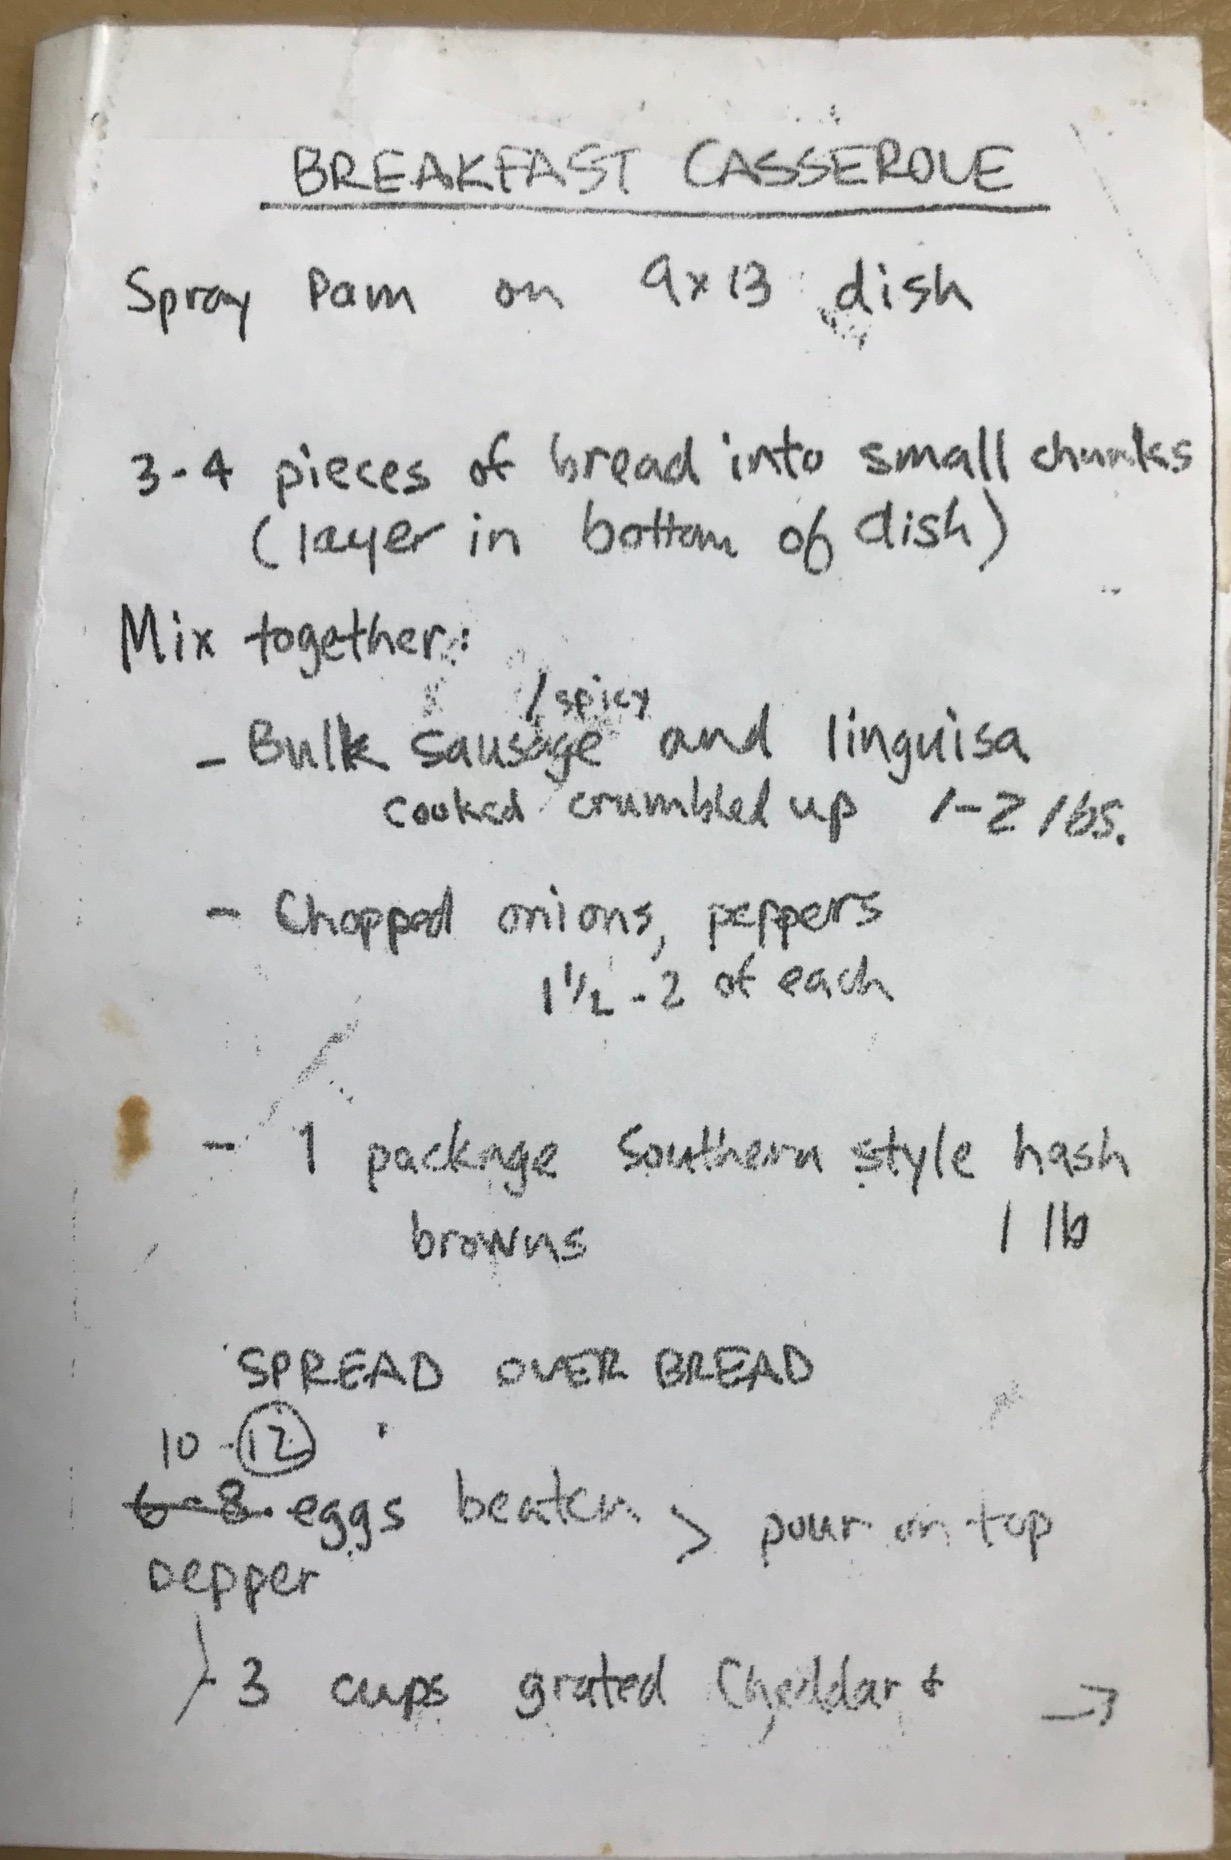 BREAKFAST CASSEROLE
Spray Pam on 9x13 dish
3-4 pieces of bread into small chunks
(layer in bottom of dish)
Mix together:
/spicy
- Bulk sausage and linguisa
cooked/crumbled up 1-2 lbs.
- Chopped onions, peppers
1 1/2 - 2 of each
- 1 package Southern style hash
browns 1 lb
SPREAD OVER BREAD
10 - 12
6-8 eggs beaten > pour on top
pepper
3 cups grated Cheddar + →